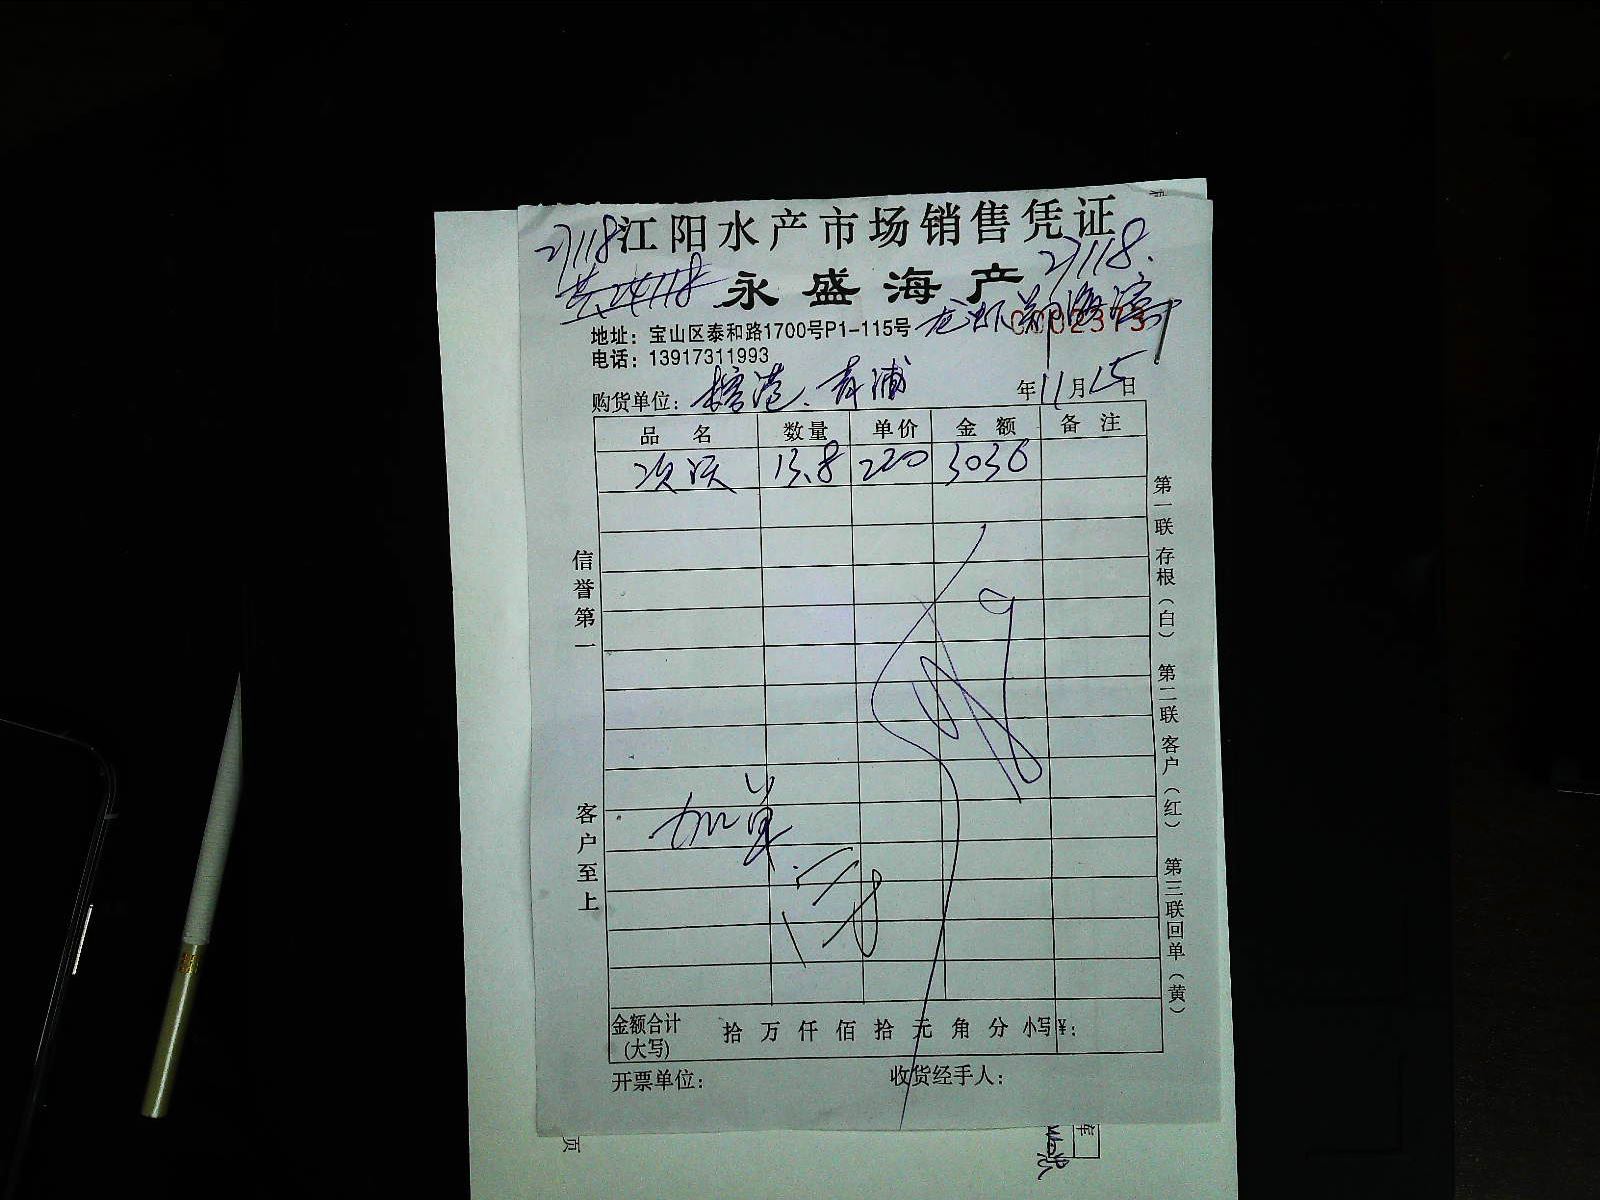 江阳水产市场销售凭证
27118
27118.
永盛海产
地址：宝山区泰和路1700号P1-115号
电话：13917311993
购货单位： 青浦 年11月15日
品名 数量 单价 金额 备注
13.8 220 3036
信誉第一
客户至上
加单
第一联存根（白） 第二联客户（红） 第三联回单（黄）
金额合计（大写） 拾 万 仟 佰 拾 元 角 分 小写¥：
开票单位： 收货经手人：
页